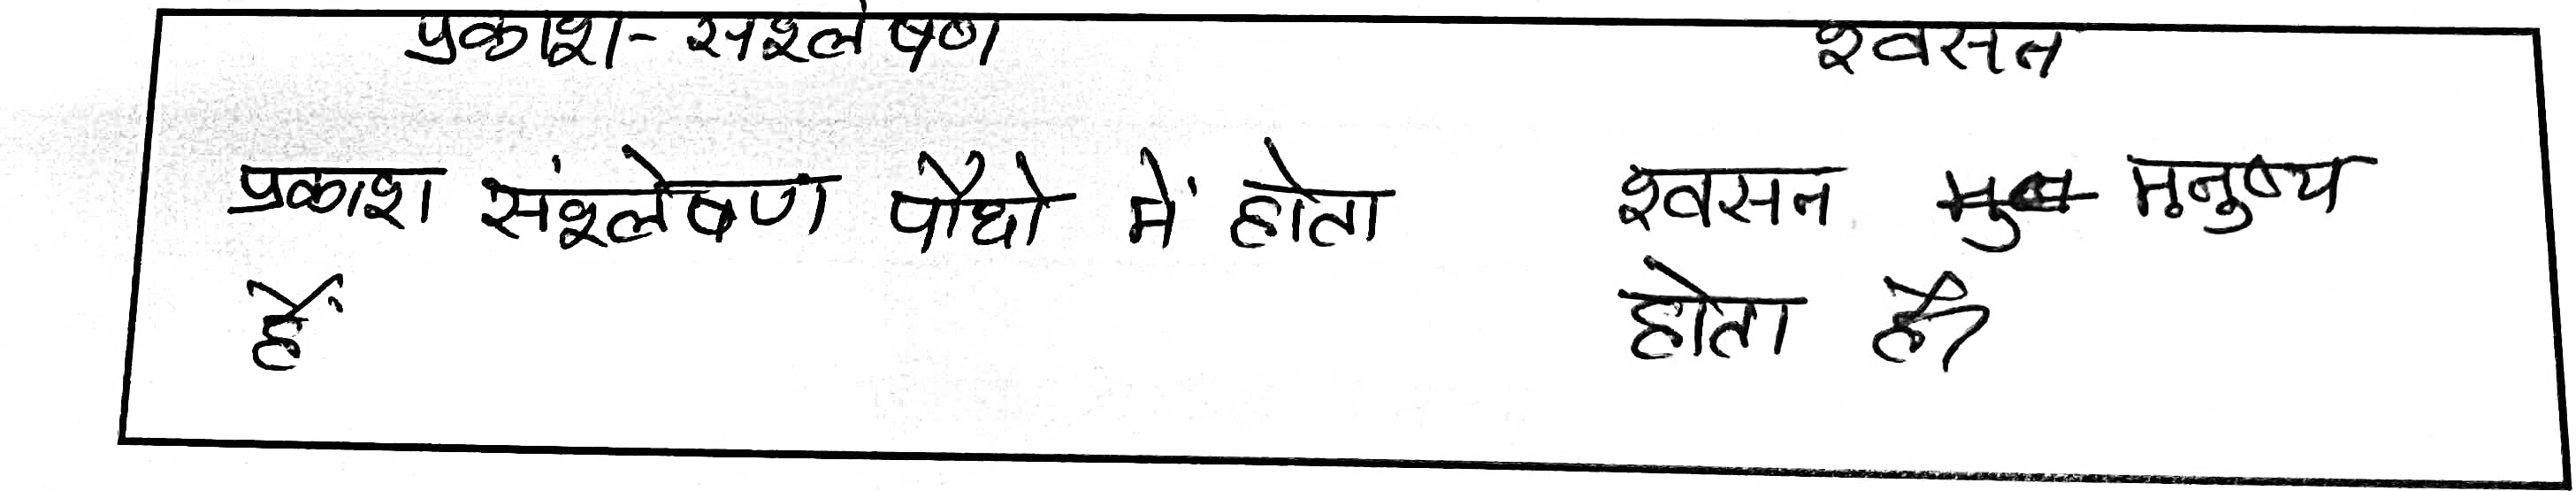 प्रकाश-संश्लेषण श्वसन
प्रकाश संश्लेषण पौधो में होता श्वसन मनुष्य
हैं होता है